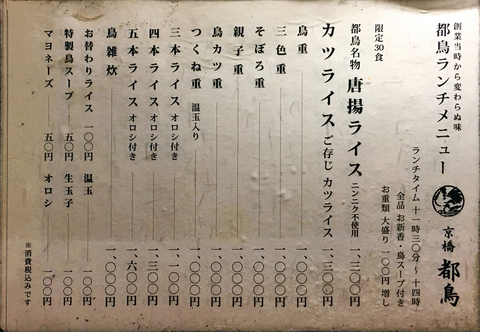 創業当時から変わらぬ味
都鳥ランチメニュー
京橋 都鳥
ランチタイム 十一時三〇分〜十四時
全品 お新香・鳥スープ付き
お重類 大盛り 一〇〇円増し
限定30食
都鳥名物 唐揚ライス ニンニク不使用 一、二〇〇円
カツライス ご存じ カツライス 一、三〇〇円
鳥重 一、〇〇〇円
三色重 一、〇〇〇円
そぼろ重 一、〇〇〇円
親子重 一、〇〇〇円
鳥カツ重 一、〇〇〇円
つくね重 温玉入り 一、〇〇〇円
三本ライス オロシ付き 一、一〇〇円
四本ライス オロシ付き 一、三〇〇円
五本ライス オロシ付き 一、六〇〇円
鳥雑炊 一、〇〇〇円
お替わりライス 一〇〇円 温玉 一〇〇円
特製鳥スープ 五〇円 生玉子 一〇〇円
マヨネーズ 五〇円 オロシ 一〇〇円
※消費税込みです